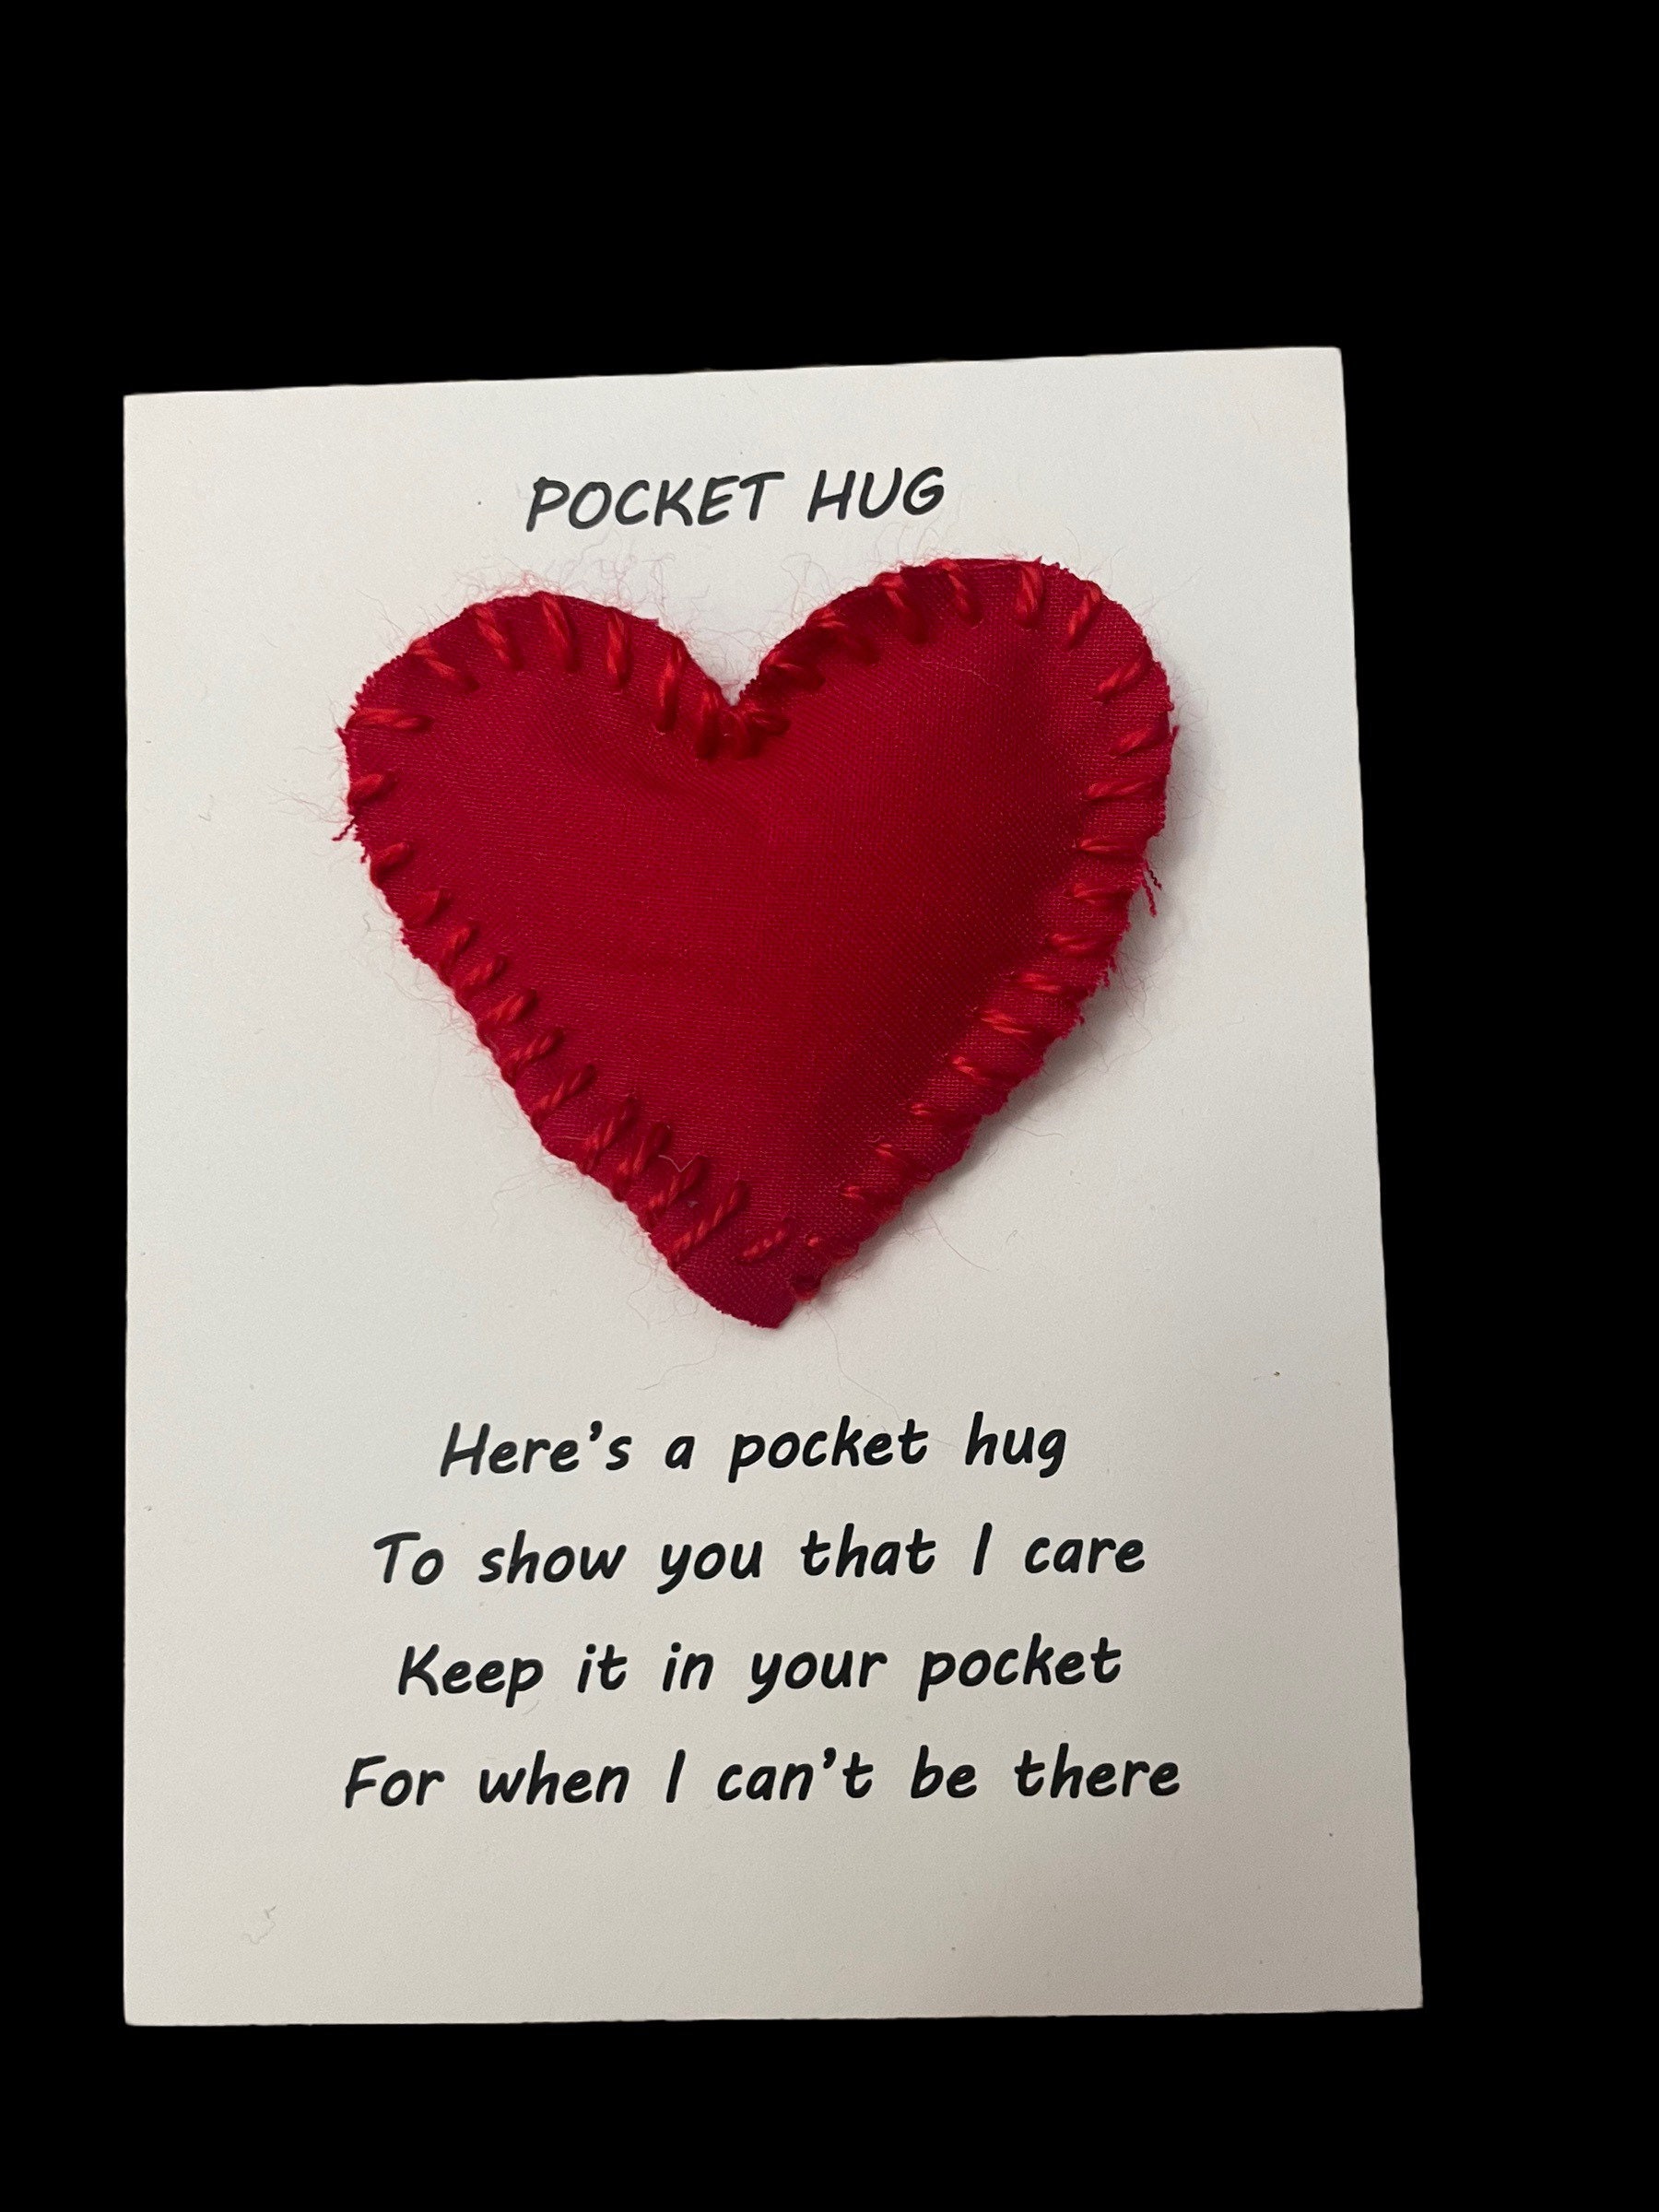 POCKET HUG
Here's a pocket hug
To show you that I care
Keep it in your pocket
For when I can't be there